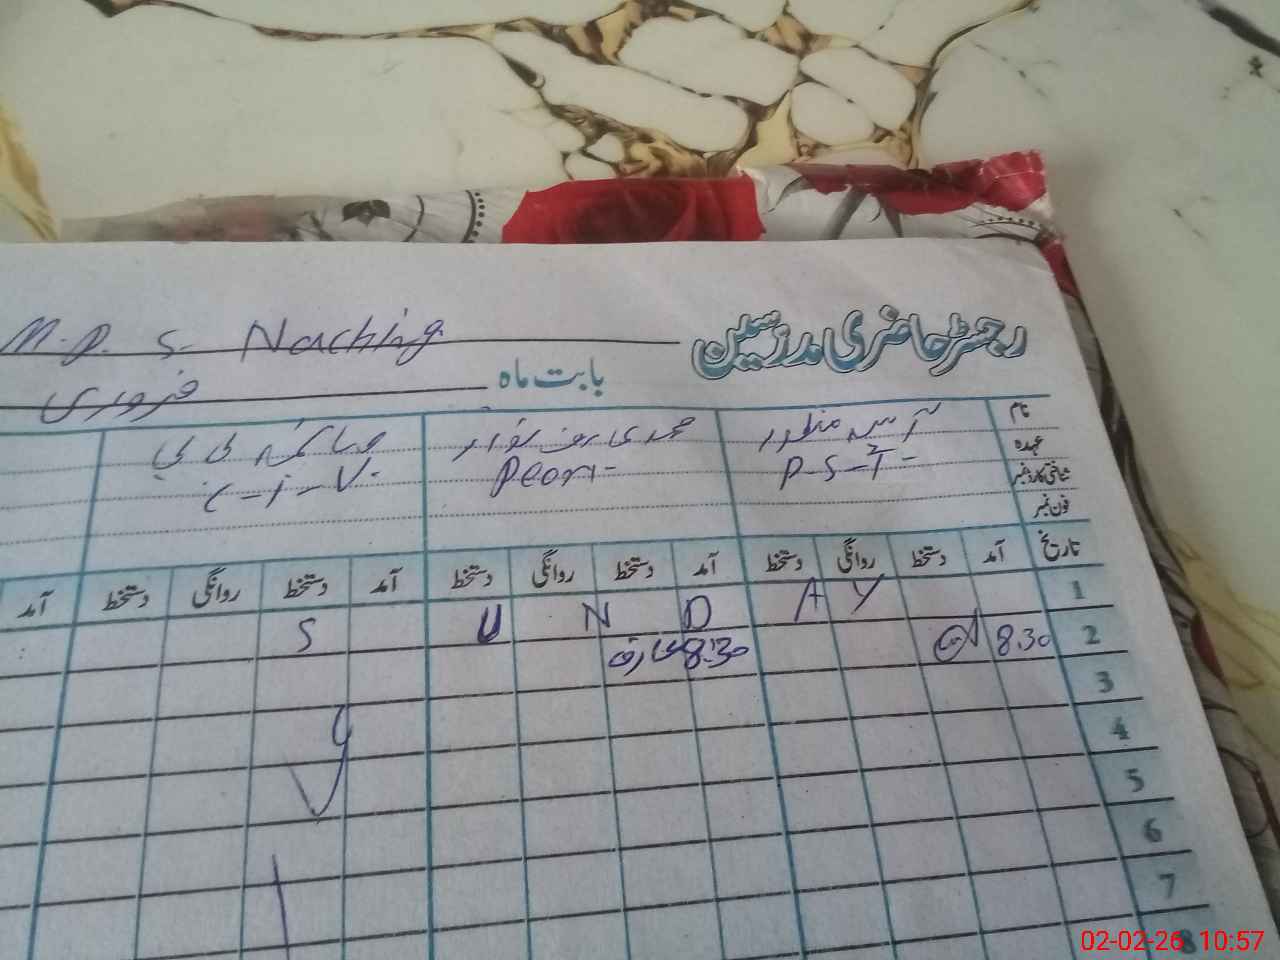 رجسٹر حاضری مدرسین M.P. S. Naching
بابت ماہ فروری
نام منظور
عہدہ P-S-T- Peon- C-I-V-
شناختی کارڈ نمبر
فون نمبر
تاریخ آمد دستخط روانگی دستخط آمد دستخط روانگی دستخط آمد دستخط روانگی دستخط آمد
1 S U N D A Y
2 8.30 8:30
3
4
5
6
7
8
02-02-26 10:57